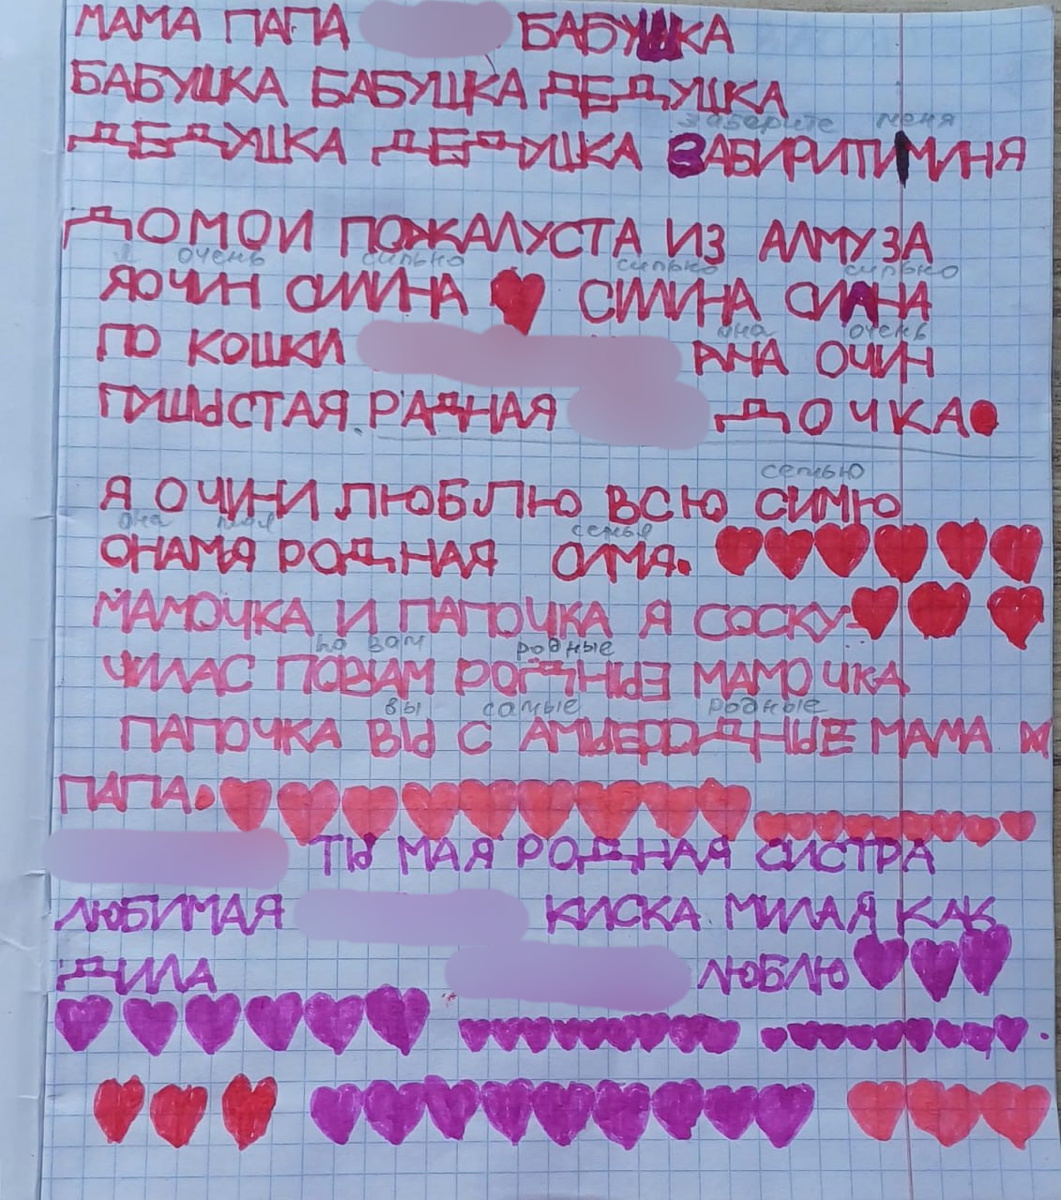 МАМА ПАПА БАБУШКА
БАБУШКА БАБУШКА ДЕДУШКА
заберите меня
ДЕДУШКА ДЕДУШКА ЗАБИРИТИ МИНЯ
ДОМОИ ПОЖАЛУСТА ИЗ АЛМУЗА
я очень сильно сильно сильно
ЯОЧИН СИЛИНА СИЛИНА СИЛНА
она очень
ПО КОШКИ АНА ОЧИН
ПУШЫСТАЯ РАДНАЯ ДОЧКА
семью
Я ОЧИНИ ЛЮБЛЮ ВСЮ СИМЮ
она моя семья
ОНАМЯ РОДНАЯ СИМЯ.
МАМОЧКА И ПАПОЧКА Я СОСКУ-
по вам родные
ЧИЛАС ПОВАМ РОДНЫЭ МАМОЧКА
вы самые родные
ПАПОЧКА ВЫ С АМЫЕРОДНЫЕ МАМА И
ПАПА.
ТЫ МАЯ РОДНАЯ СИСТРА
ЛЮБИМАЯ КИСКА МИЛАЯ КАК
ДИЛА ЛЮБЛЮ